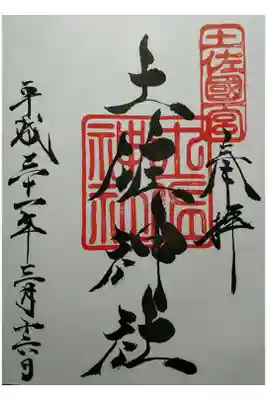 奉拝
土佐國一宮
土佐神社
土佐
神社
平成三十一年三月十六日